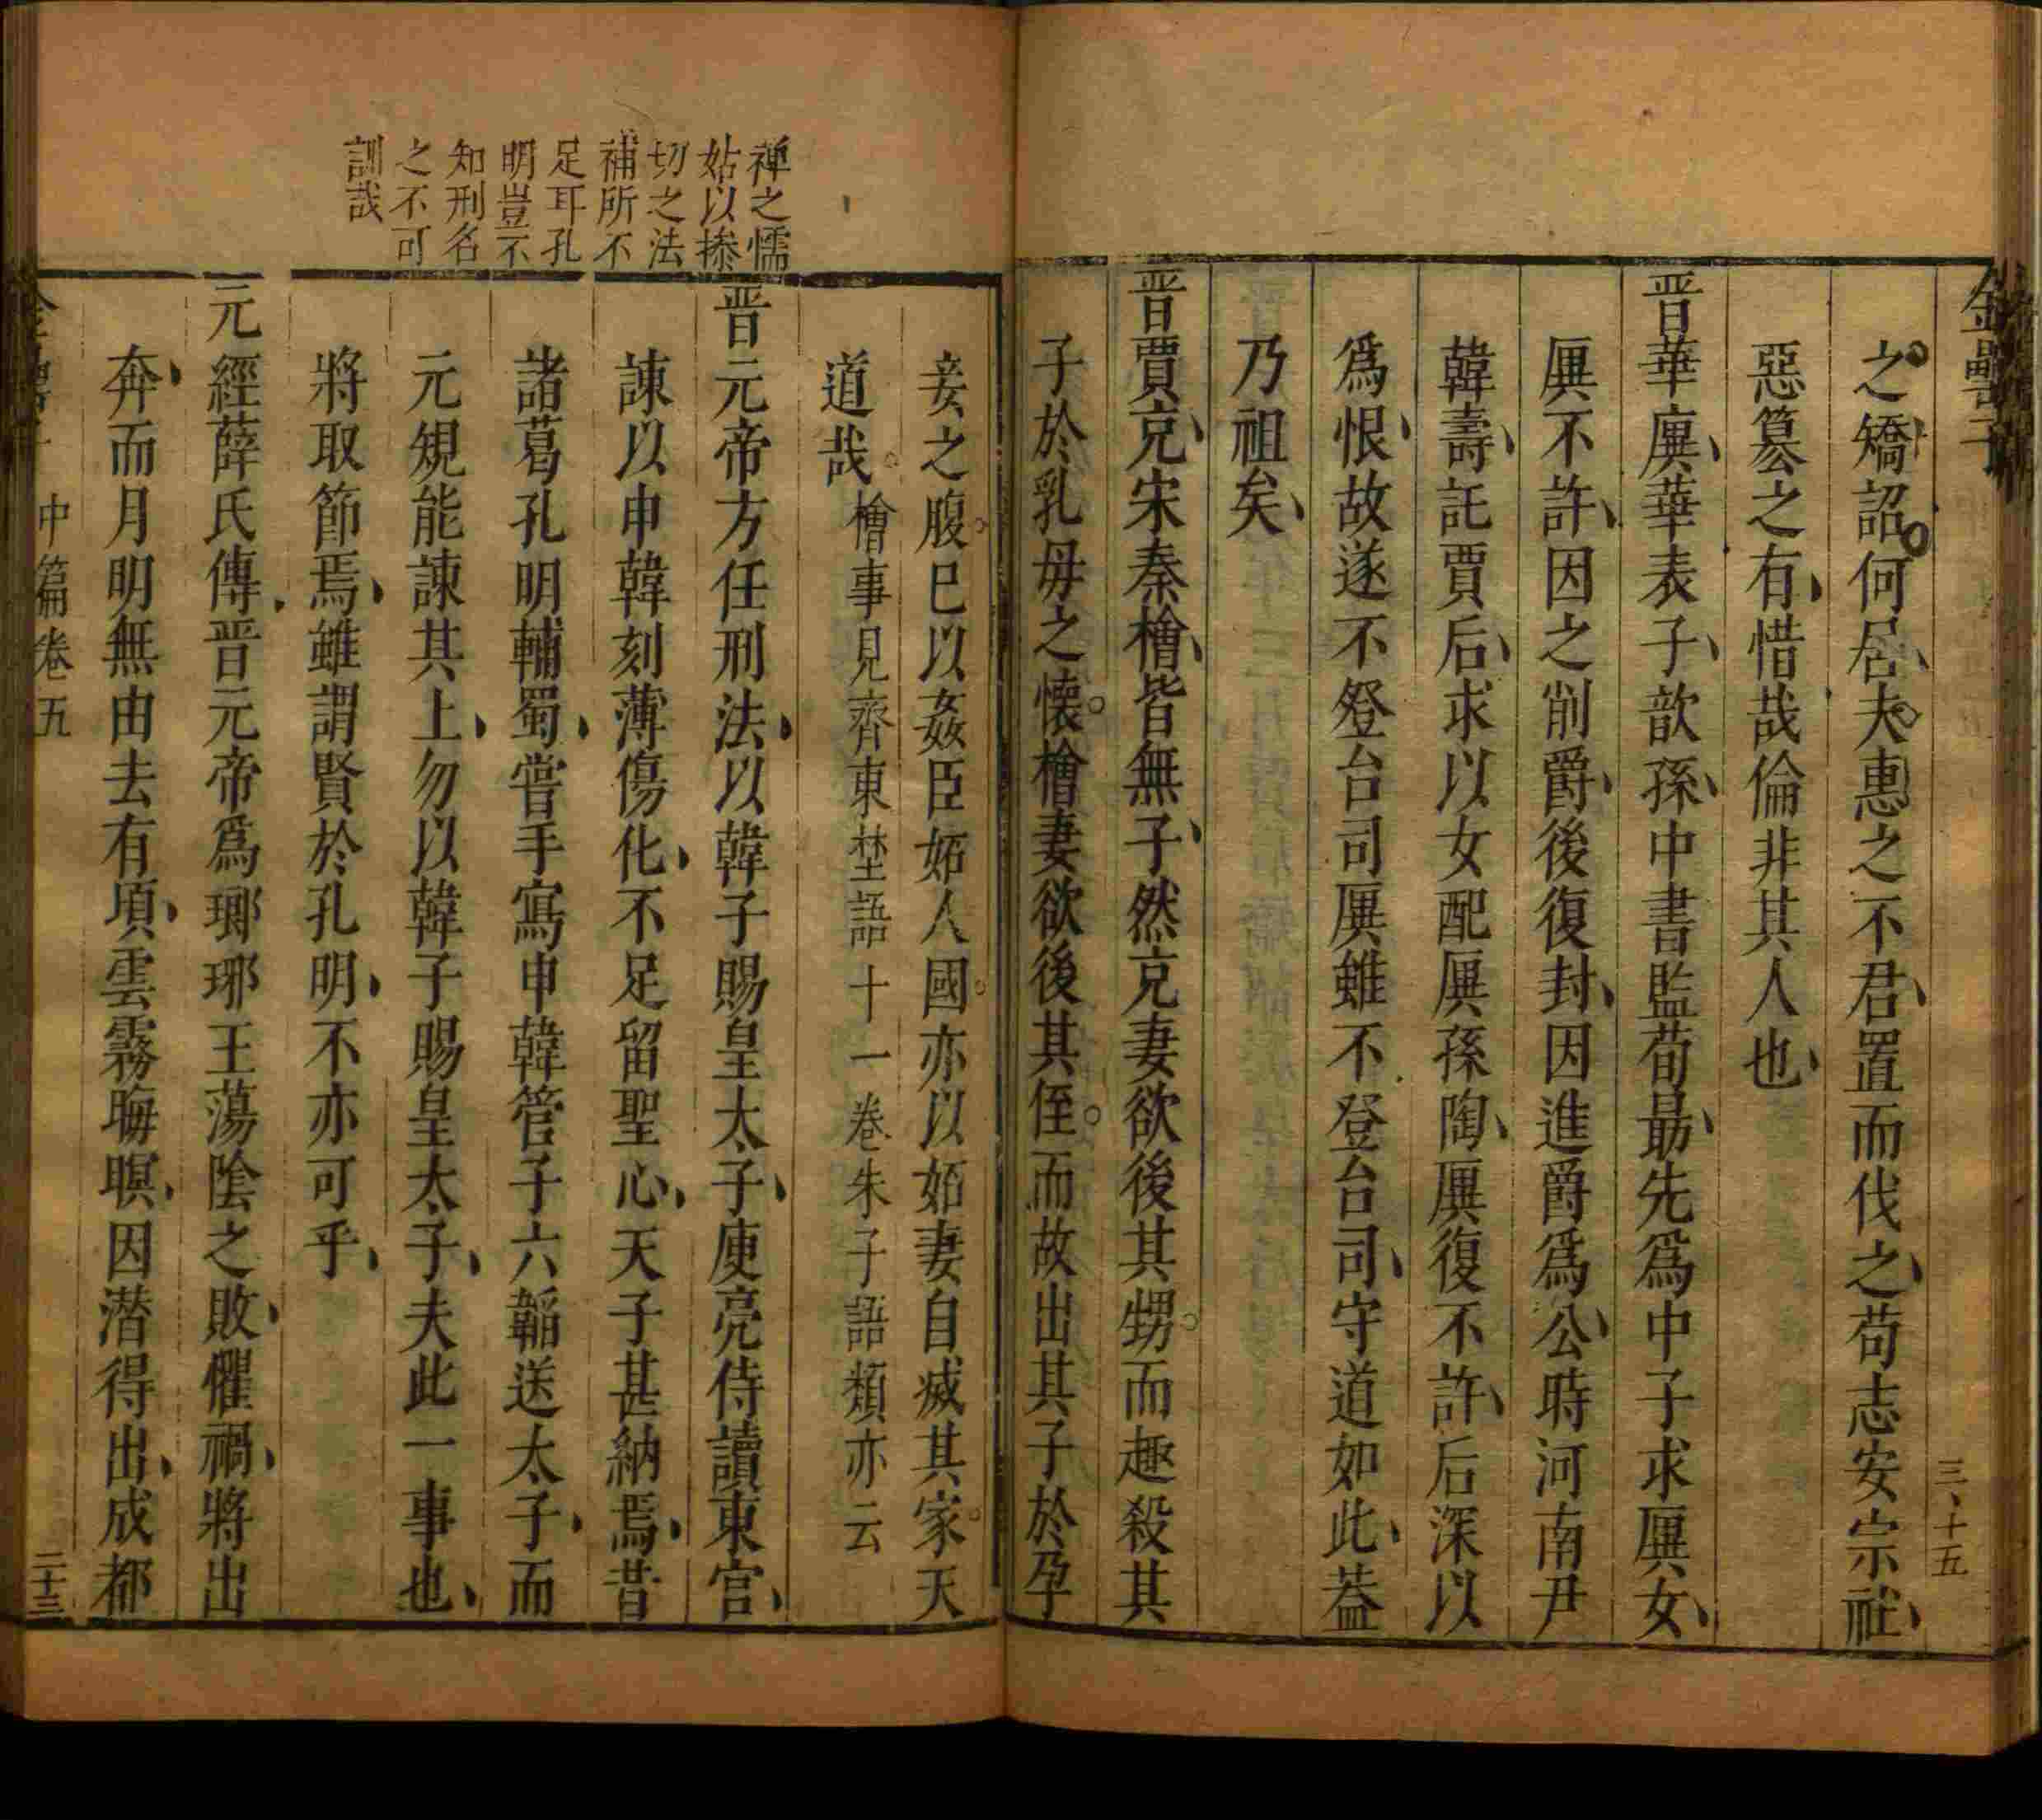 金罍子
三十五
之矯詔何居夫惠之不君置而伐之苟志安宗社
惡簒之有惜哉倫非其人也
晋華廙華表子歆孫中書監荀勗先爲中子求廙女
廙不許因之削爵後復封因進爵爲公時河南尹
韓壽託賈后求以女配廙孫陶廙復不許后深以
爲恨故遂不登台司廙雖不登台司守道如此葢
乃祖矣
晋賈充宋秦檜皆無子然充妻欲後其甥而趣殺其
子於乳母之懷檜妻欲後其侄而故出其子於孕
妾之腹巳以姦臣妬人國亦以妬妻自滅其家天
道哉檜事見齊東埜語十一卷朱子語類亦云
晋元帝方任刑法以韓子賜皇太子庾亮侍讀東宫
諫以申韓刻薄傷化不足留聖心天子甚納焉昔
諸葛孔明輔蜀嘗手寫申韓管子六韜送太子而
元規能諫其上勿以韓子賜皇太子夫此一事也
將取節焉雖謂賢於孔明不亦可乎
元經薛氏傳晋元帝爲瑯琊王蕩陰之敗懼禍將出
奔而月明無由去有頃雲霧晦暝因潜得出成都
禪之懦
姑以摻
切之法
補所不
足耳孔
明豈不
知刑名
之不可
訓哉
中篇卷五
二十三